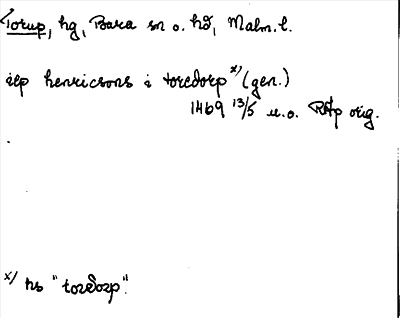 Torup, hg, Bara sn o. hd, Malm. l.
iep henricsons i toredorp x) (gen.)
1469 13/5 u.o. RAp orig.
x/ hs "toredorp".